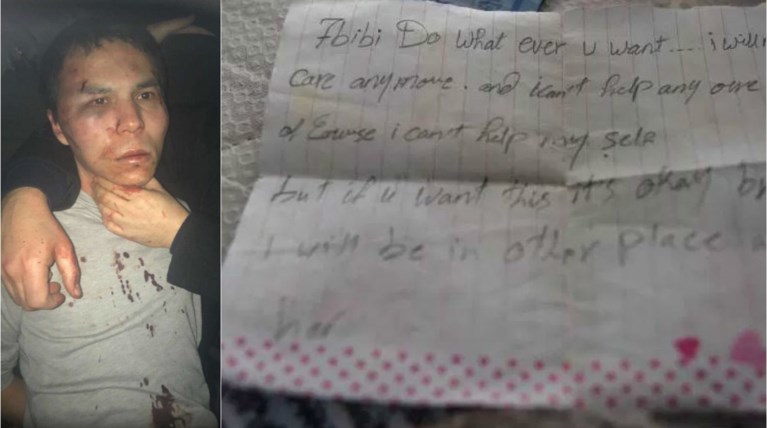 7bibi Do what ever u want.... i will
Care anymore. and i can't help any one
of Course i can't help my self
but if u want this it's okay b
I will be in other place a
her